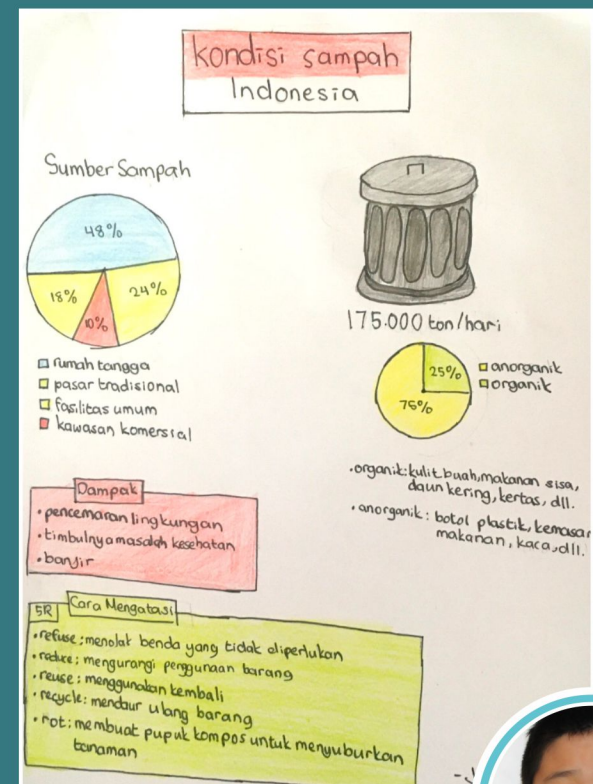 kondisi sampah
Indonesia
Sumber Sampah
48%
18%
24%
10%
rumah tangga
pasar tradisional
fasilitas umum
kawasan komersial
175.000 ton/hari
25%
75%
anorganik
organik
• organik: kulit buah, makanan sisa,
daun kering, kertas, dll.
• anorganik: botol plastik, kemasan
makanan, kaca, dll.
Dampak
• pencemaran lingkungan
• timbulnya masalah kesehatan
• banjir
5R
Cara Mengatasi
• refuse: menolak benda yang tidak diperlukan
• reduce: mengurangi penggunaan barang
• reuse: menggunakan kembali
• recycle: mendaur ulang barang
• rot: membuat pupuk kompos untuk menyuburkan
tanaman